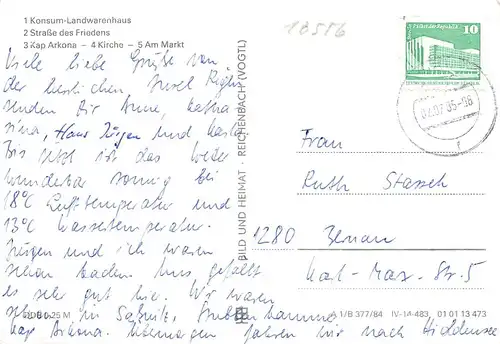 1 Konsum-Landwarenhaus
2 Straße des Friedens
3 Kap Arkona – 4 Kirche – 5 Am Markt
Viele liebe Grüße von
der herrlichen Insel Rügen
senden Dir Anne, Katha-
rina, Hans Jürgen und
Bis jetzt ist das Wetter
wunderbar sonnig bei
18°C Lufttemperatur und
13°C Wassertemperatur.
Jürgen und ich waren
schon baden. Uns gefällt
es sehr gut hier. Wir waren
schon in Saßnitz, Stubbenkammer
Kap Arkona. Übermorgen fahren wir nach Hiddensee
BILD UND HEIMAT · REICHENBACH (VOGTL)
18556
10
02.07.85-98
Frau
Ruth
1280 Bernau
Karl-Marx-Str. 5
A 1/B 377/84 IV-14-483 01 01 13 473